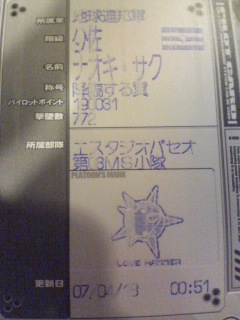 所属軍 地球連邦軍
階級 少佐
名前 ナオキ・サク
称号 降臨する翼
パイロットポイント 190031
撃墜数 772
所属部隊 エスタジオパセオ
第08MS小隊
PLATOON'S MARK
LOVE HAMMER
更新日 07/04/18 00:51